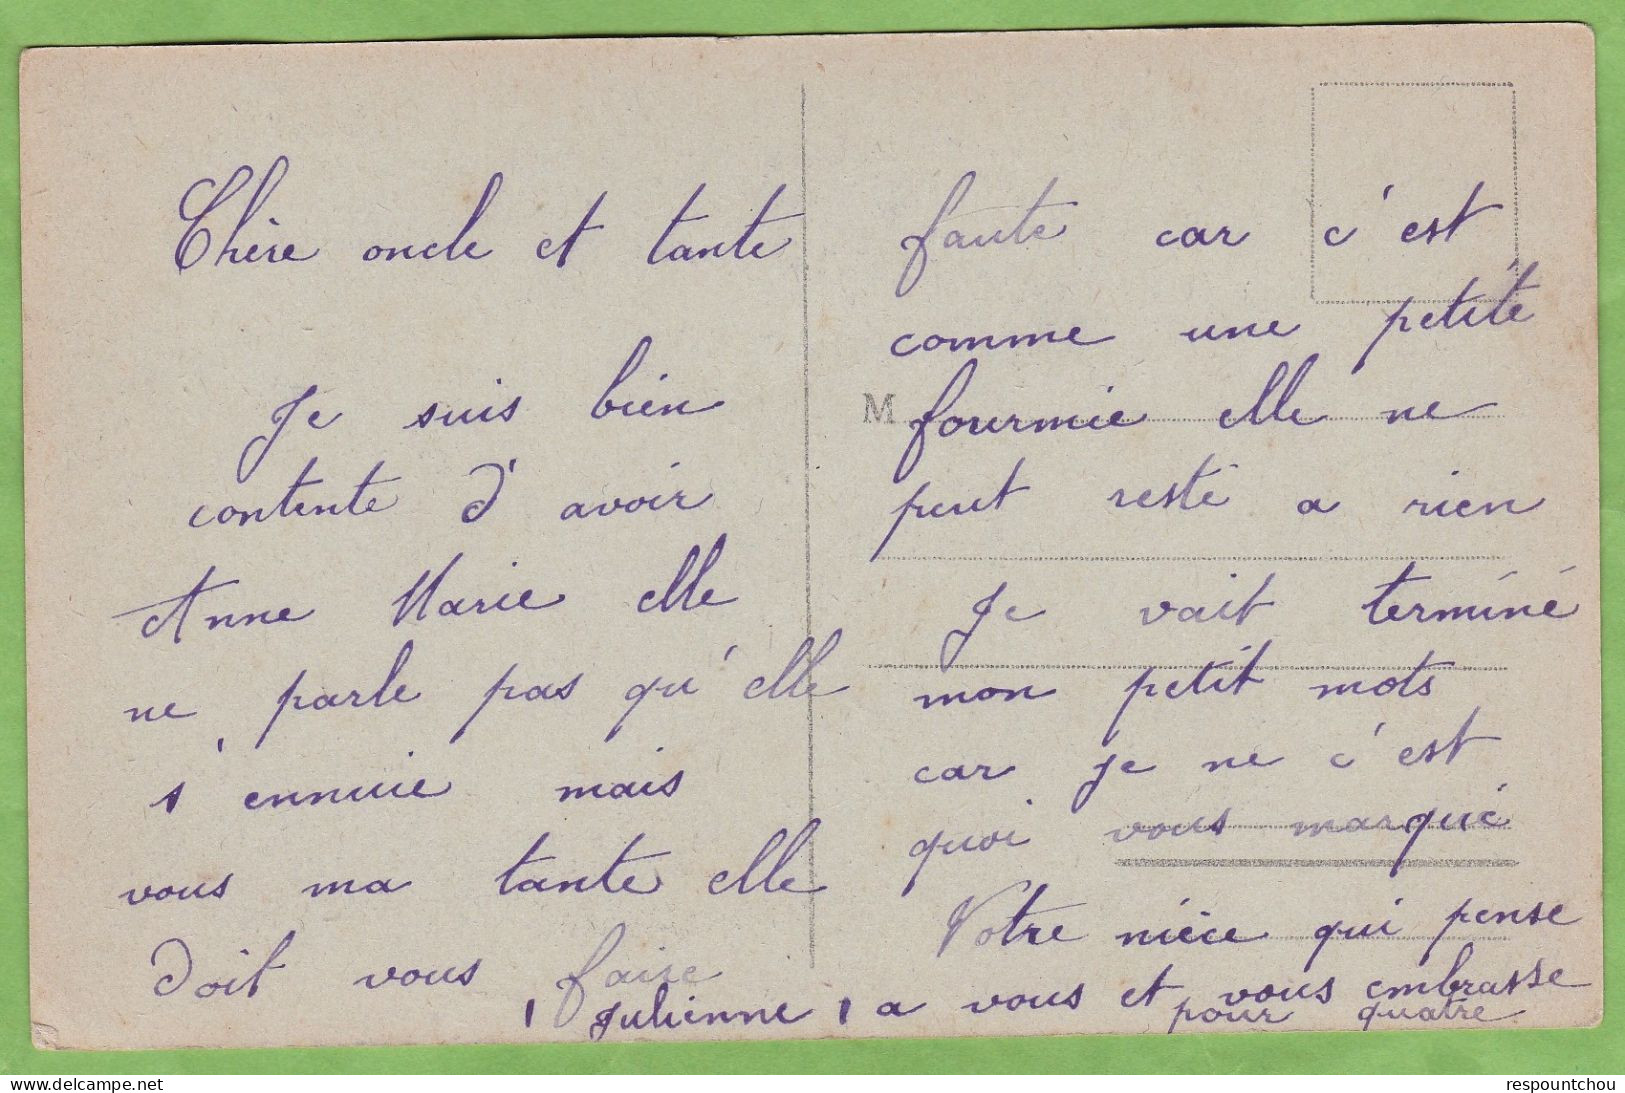 Chère oncle et tante
Je suis bien
contente d'avoir
Anne Marie elle
ne parle pas qu'elle
s'ennuie mais
vous ma tante elle
doit vous faire
faute car c'est
comme une petite
M fourmie elle ne
peut resté a rien
Je vait terminé
mon petit mots
car je ne c'est
quoi vous marqué
Votre nièce qui pense
Julienne a vous et vous embrasse
pour quatre
respountchou